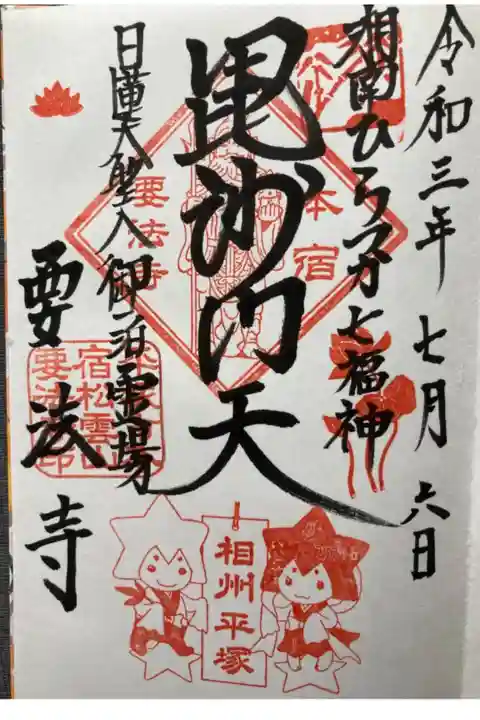 令和三年七月六日
相南ひらつか七福神
毘沙門天
日蓮大聖人御泊霊場
要法寺
本宿
要法寺
宿松雲山
要法寺印
相州平塚